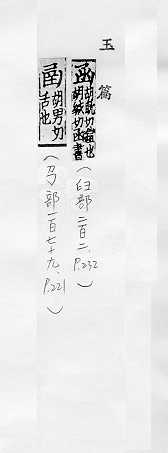 玉篇
函胡讒切鎧也
胡緘切函書
(臼部二百二、P.232)
圅胡男切
舌也
(㔾部一百七十九、P.221)